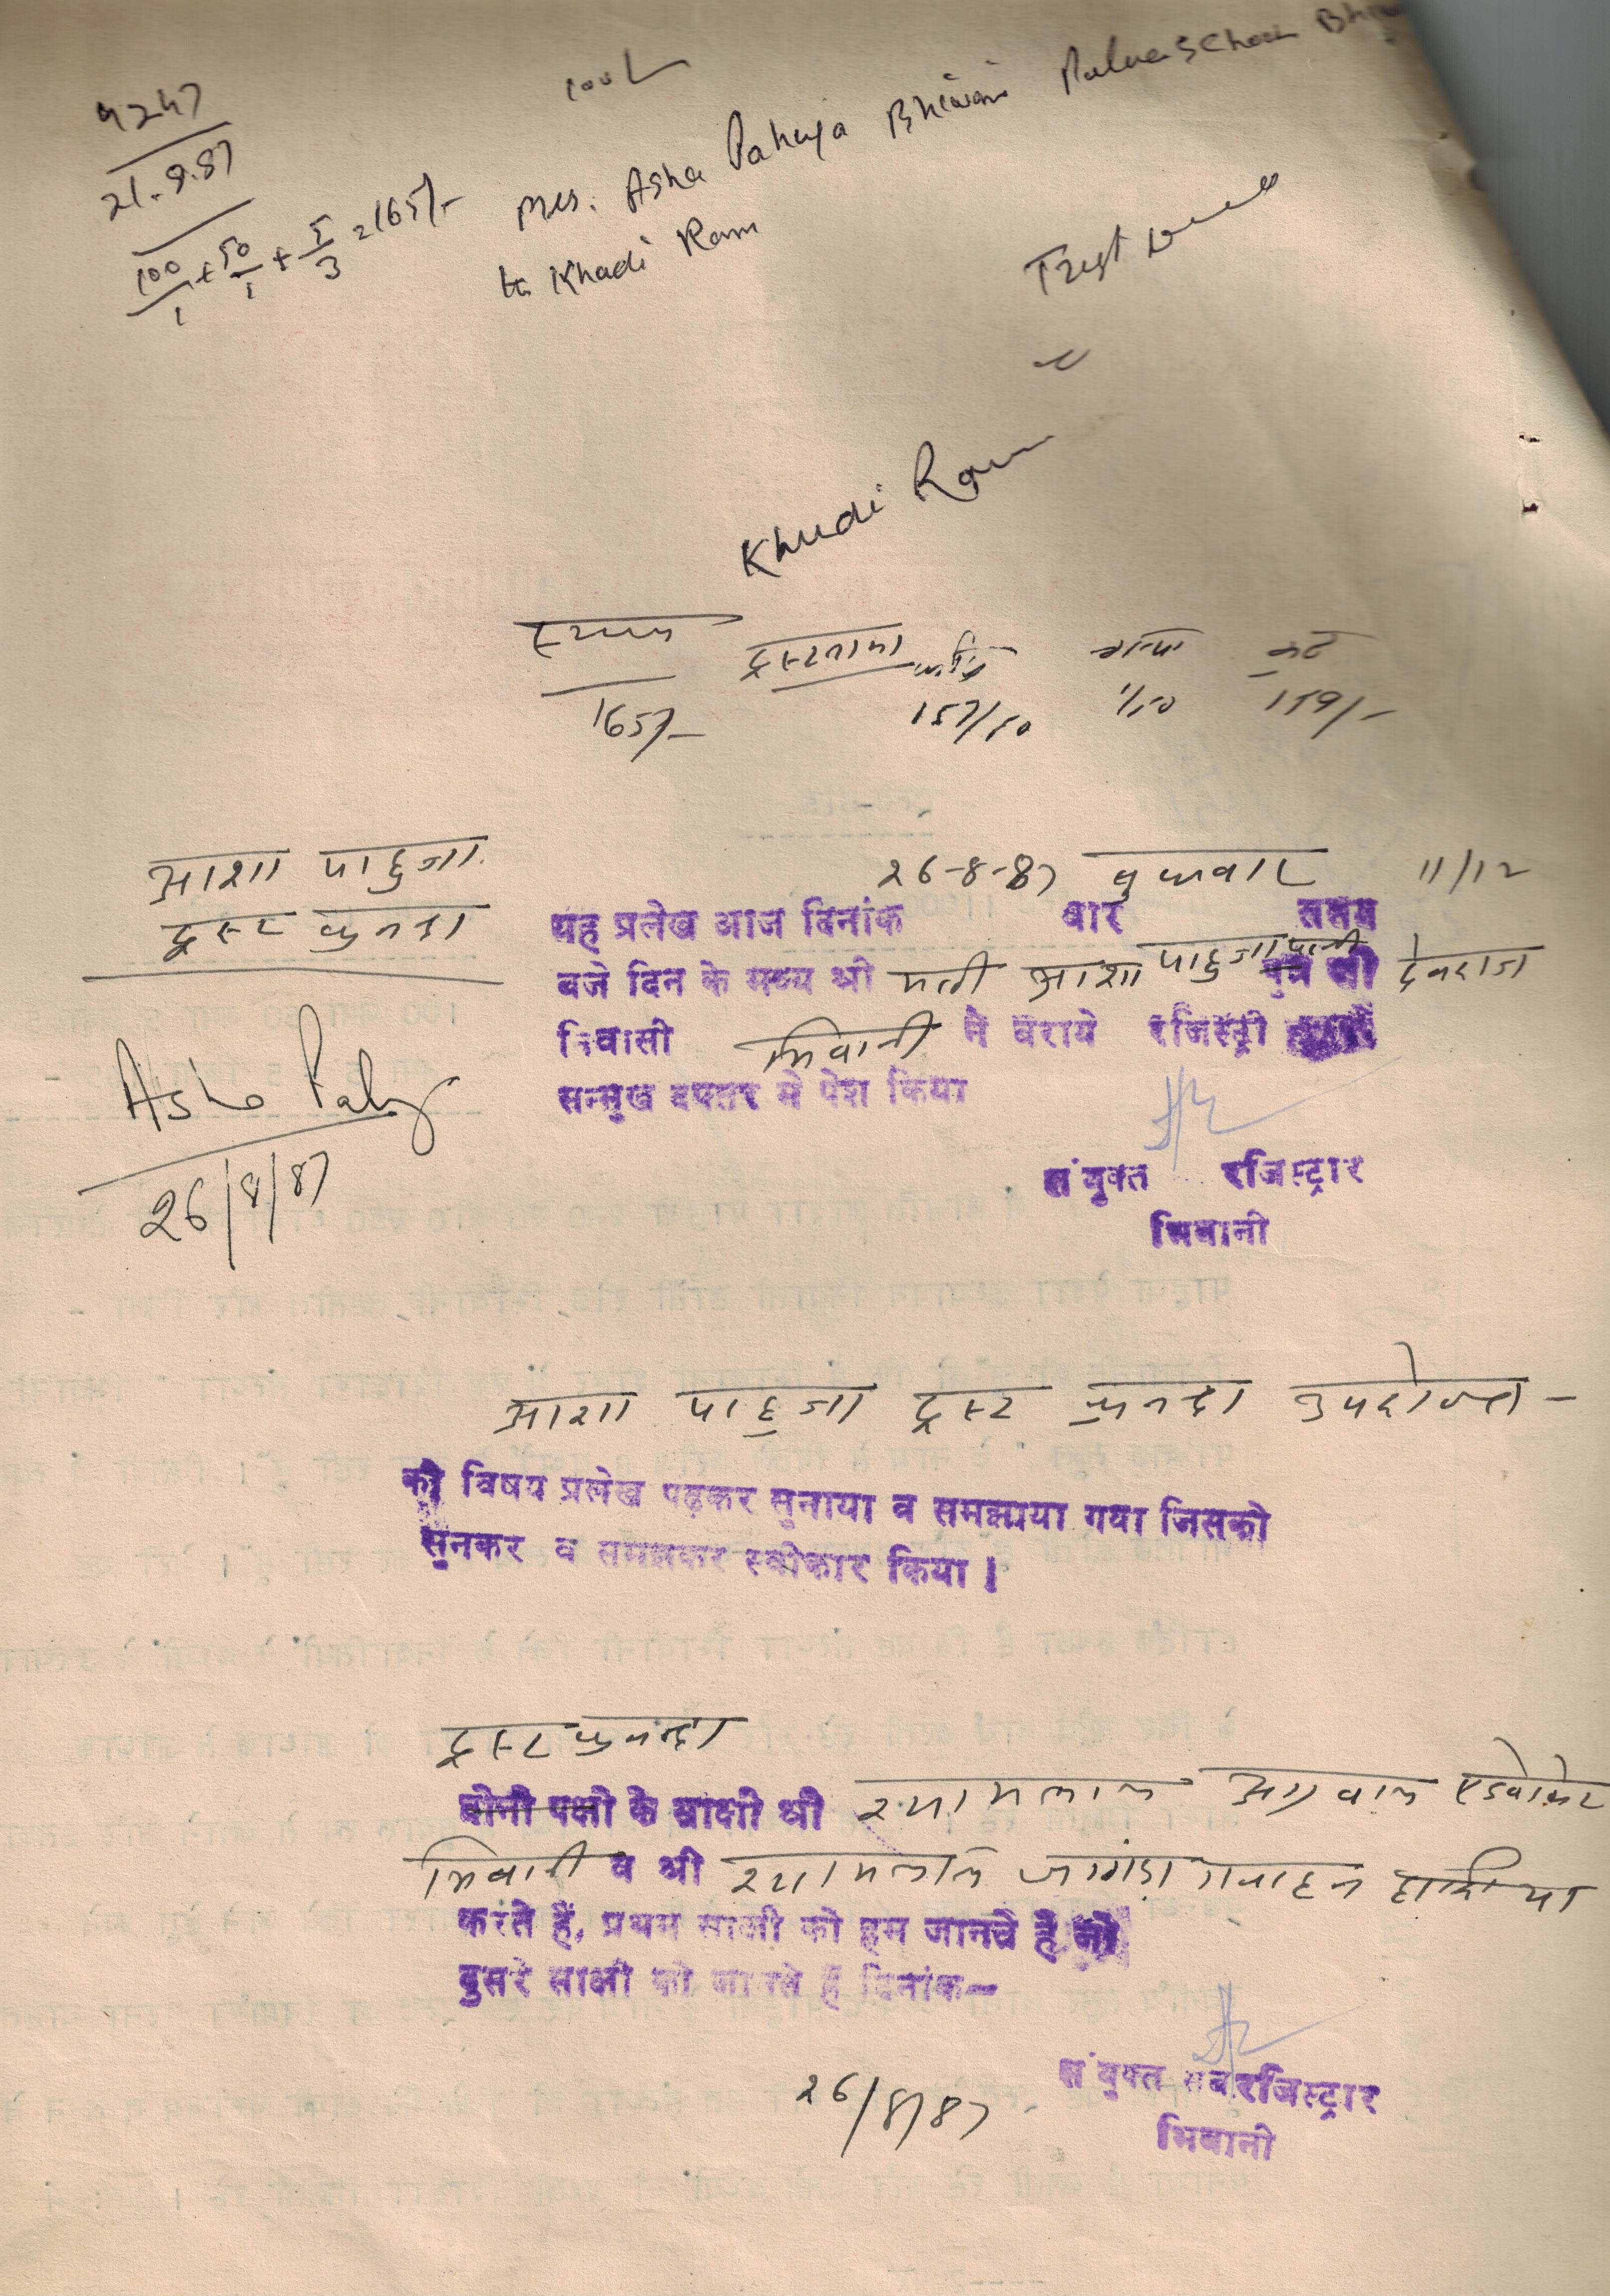 4247
21.8.87
100/1 + 50/1 + 5/3 = 165/-
100/-
Mrs. Asha Pahuja Bhiwani Public School
to Khadi Ram
Trust Deed
Khudi Ram
स्टाम्प ट्रस्टनामा
165/- 157/50 1/50 159/-
आशा पाहुजा
ट्रस्ट कुनन्दा
Asha Pahuja
26/8/87
26-8-87 बुधवार 11/12
यह प्रलेख आज दिनांक वार समय
बजे दिन के मध्य श्री मती आशा पाहुजा पत्नी पुत्र श्री देवराज
निवासी भिवानी ने बराये रजिस्ट्री
सन्मुख दफ्तर में पेश किया
संयुक्त रजिस्ट्रार
भिवानी
आशा पाहुजा ट्रस्ट कुनन्दा उपरोक्त -
को विषय प्रलेख पढ़कर सुनाया व समझाया गया जिसको
सुनकर व समझकर स्वीकार किया।
ट्रस्ट कुनन्दा
दोनों पक्षों के साक्षी श्री श्यामलाल अग्रवाल एडवोकेट
भिवानी व श्री श्यामलाल जांगड़ा
करते हैं, प्रथम साक्षी को हम जानते हैं जो
दुसरे साक्षी को जानते हैं दिनांक—
26/8/87
संयुक्त सबरजिस्ट्रार
भिवानी